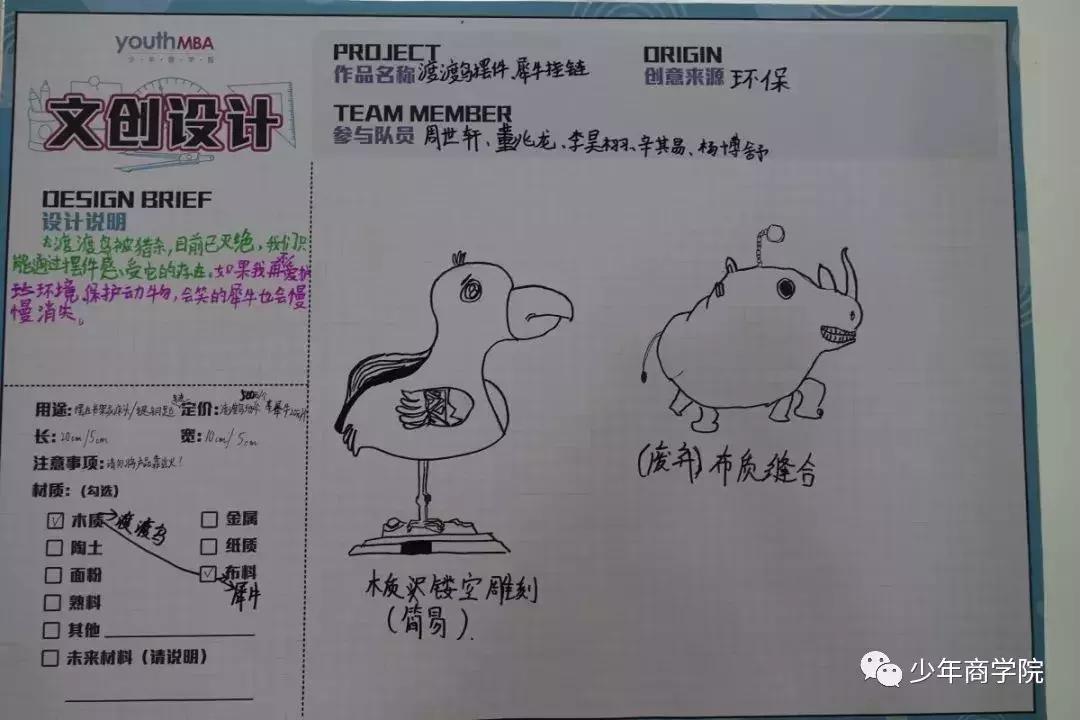 youthMBA
少年商学院
文创设计
PROJECT
作品名称 渡渡鸟摆件、犀牛挂链
ORIGIN
创意来源 环保
TEAM MEMBER
参与队员 周世轩、董兆龙、李昊栩、辛其昌、杨博舒
DESIGN BRIEF
设计说明
渡渡鸟被猎杀,目前已灭绝,我们只
能通过摆件感受它的存在。如果我再不爱护
环境,保护动物,会笑的犀牛也会慢
慢消失。
用途:
定价:
长:20cm/5cm
宽:10cm/5cm
注意事项:请勿将产品靠近火!
材质:(勾选)
木质 渡渡鸟
金属
陶土
纸质
面粉
布料
犀牛
熟料
其他
未来材料(请说明)
木质 镂空雕刻
(简易)
(废弃)布质缝合
少年商学院